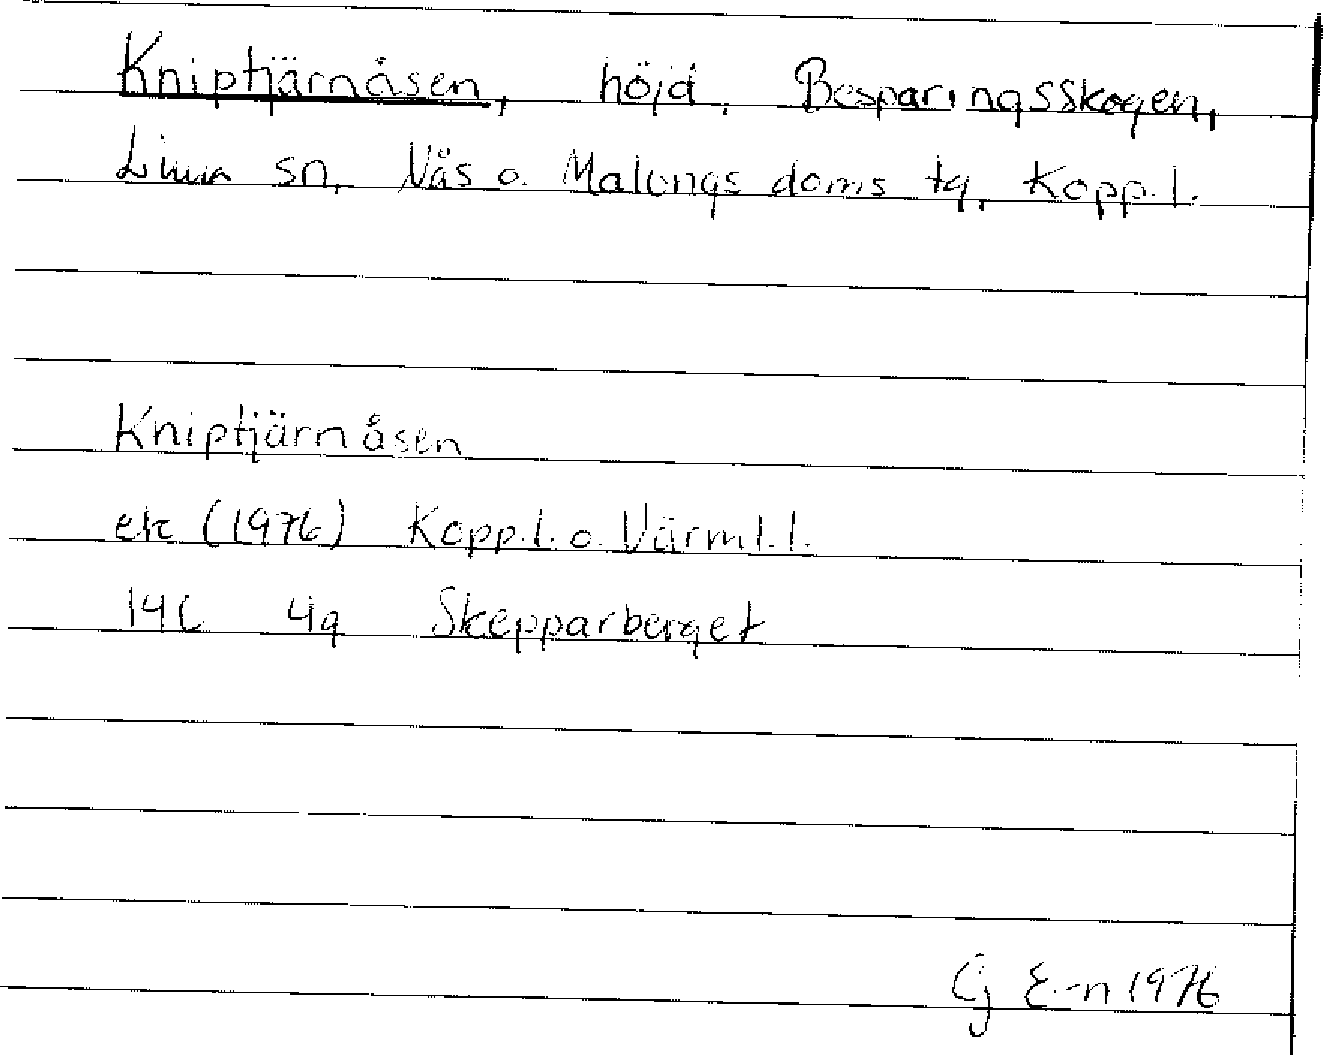 Kniptjärnåsen, höjd, Besparingsskogen,
Lima sn, Nås o. Malungs doms tg, Kopp. l.
Kniptjärnåsen
ek (1976) Kopp. l. o. Värml. l.
14C 4g Skepparberget
Gj E-n 1976